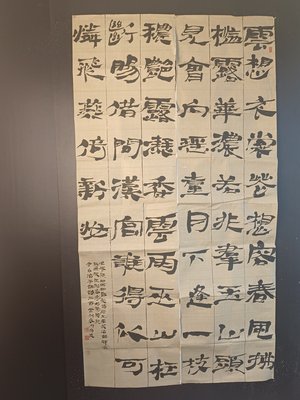 雲想衣裳花想容春風拂
檻露華濃若非羣玉山頭
見會向瑤臺月下逢一枝
穠艷露凝香雲雨巫山枉
斷腸借問漢宮誰得似可
憐飛燕倚新妝